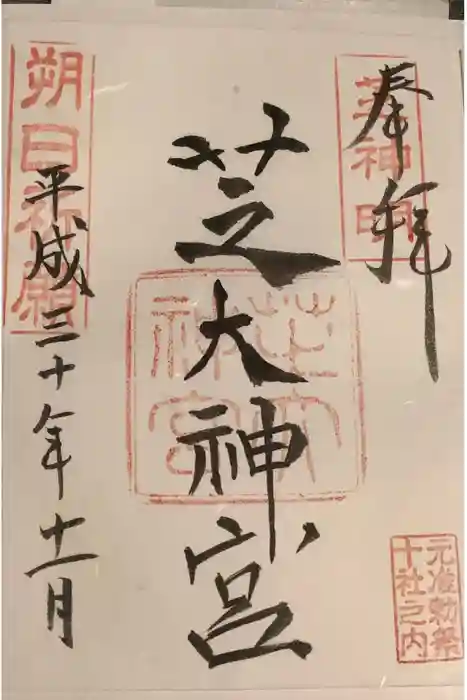 奉拝
芝神明
芝大神宮
芝大神宮
朔日祈願
平成三十年十一月
元准勅祭
十社之内